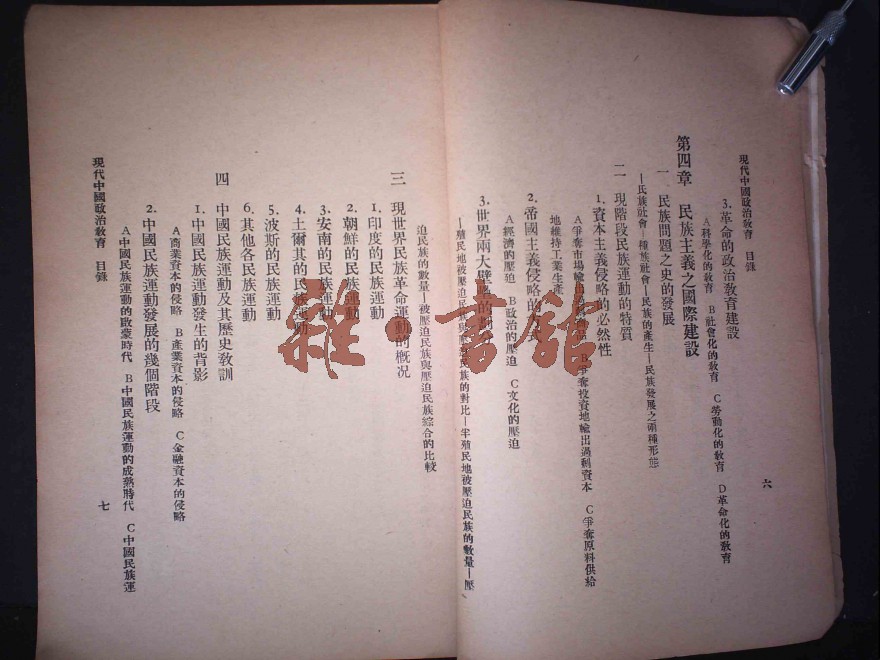 現代中國政治敎育 目錄
3.革命的政治敎育建設
A科學化的敎育 B社會化的敎育 C勞動化的敎育 D革命化的敎育
第四章 民族主義之國際建設
一 民族問題之史的發展
—民族社會—種族社會—民族的產生—民族發展之兩種形態
二 現階段民族運動的特質
1.資本主義侵略的必然性
A爭奪市場輸出過剩商品 B爭奪投資地輸出過剩資本 C爭奪原料供給
地維持工業生產
2.帝國主義侵略的方式
A經濟的壓迫 B政治的壓迫 C文化的壓迫
3.世界兩大壁壘的劃分
—殖民地被壓迫民族與壓迫民族的對比—半殖民地被壓迫民族的數量—壓
六
迫民族的數量—被壓迫民族與壓迫民族綜合的比較
三 現世界民族革命運動的槪況
1.印度的民族運動
2.朝鮮的民族運動
3.安南的民族運動
4.土爾其的民族運動
5.波斯的民族運動
6.其他各民族運動
四 中國民族運動及其歷史敎訓
1.中國民族運動發生的背影
A商業資本的侵略 B產業資本的侵略 C金融資本的侵略
2.中國民族運動發展的幾個階段
A中國民族運動的啟蒙時代 B中國民族運動的成熟時代 C中國民族運
現代中國政治敎育 目錄
七
雜·書館